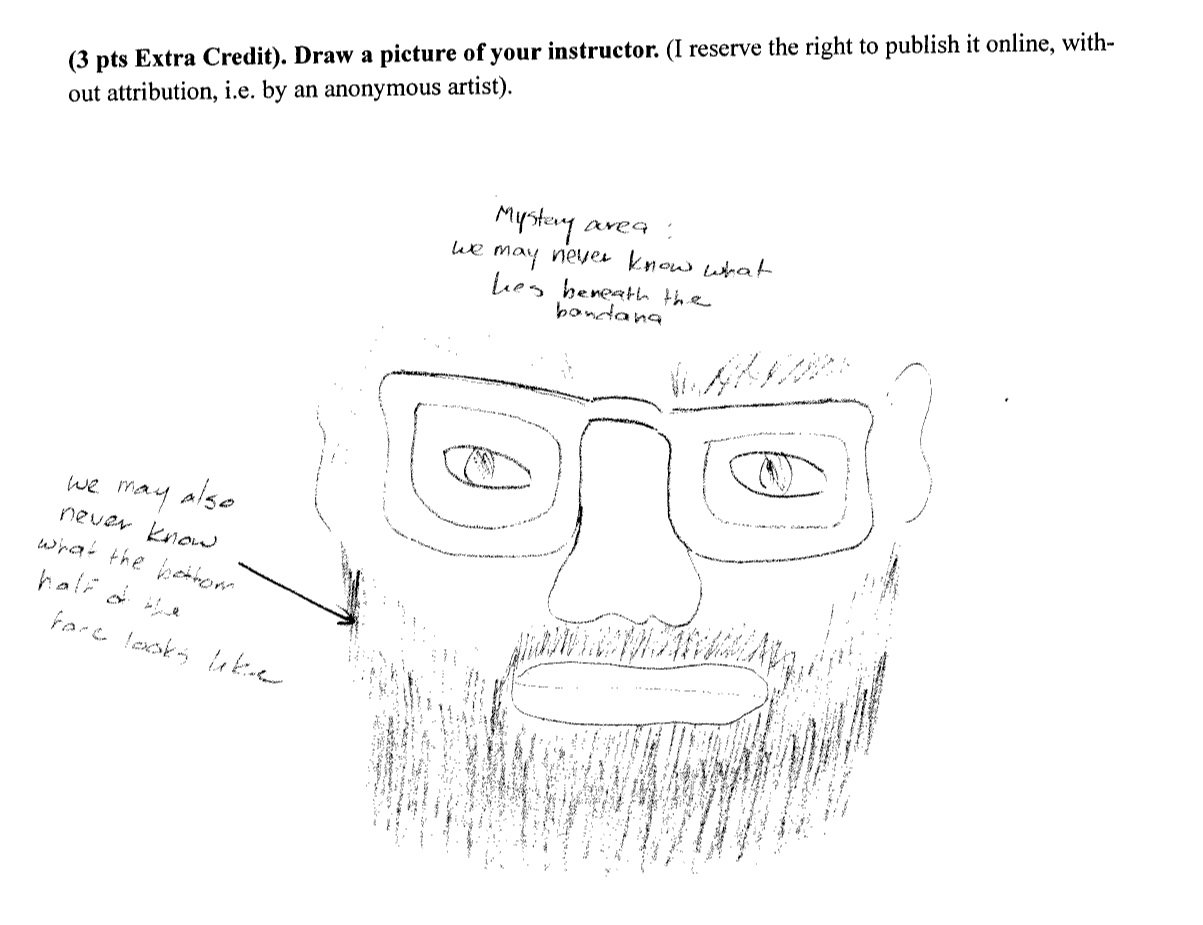 (3 pts Extra Credit). Draw a picture of your instructor. (I reserve the right to publish it online, with-
out attribution, i.e. by an anonymous artist).
Mystery area :
we may never know what
lies beneath the
bandana
we may also
never know
what the bottom
half of the
face looks like